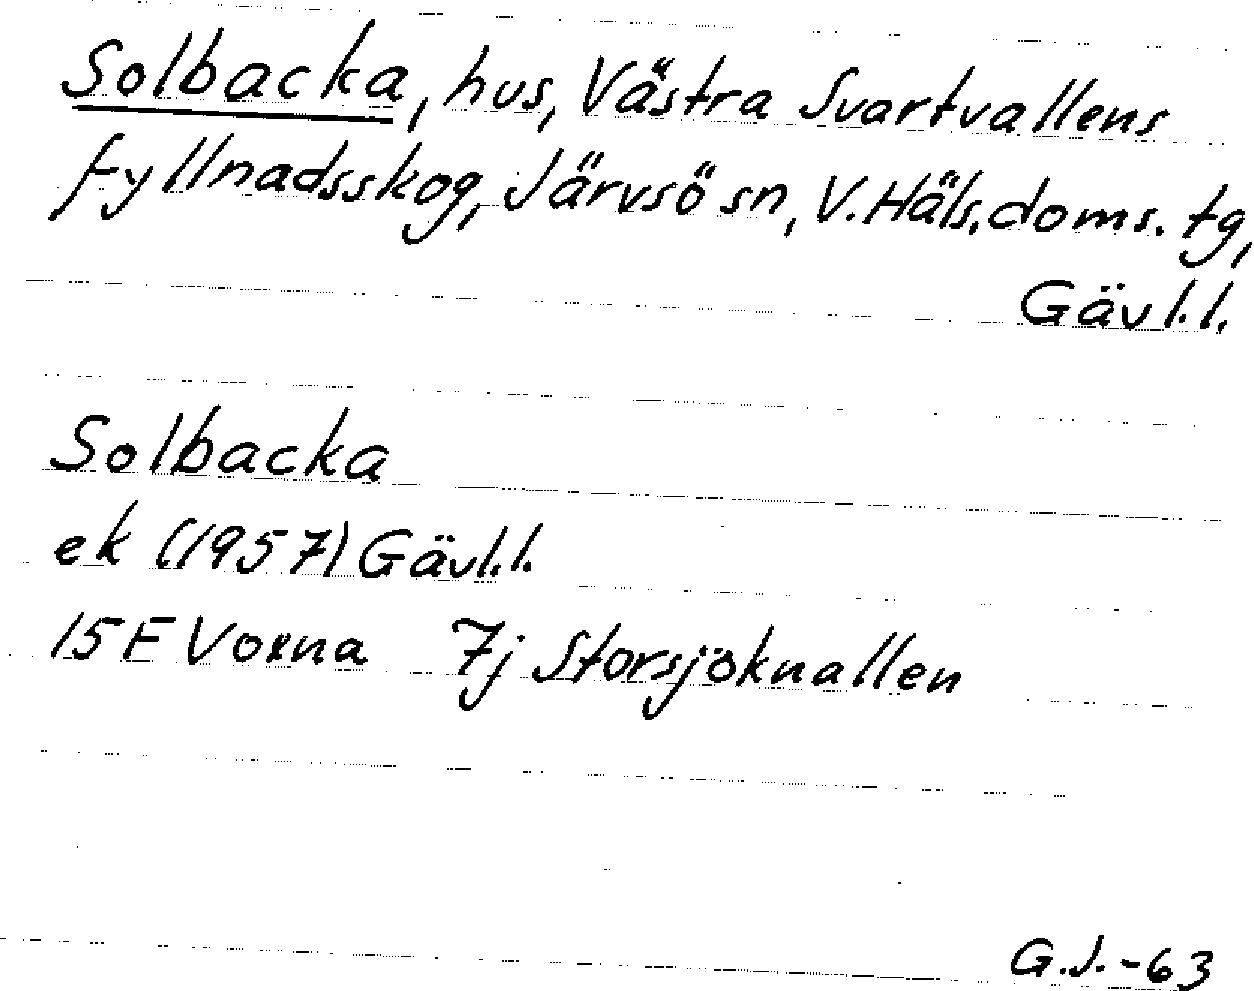 Solbacka, hus, Västra Svartvallens
fyllnadsskog, Järvsö sn, V. Häls. doms. tg,
Gävl. l.
Solbacka
ek (1957) Gävl. l.
15 F Voxna 7j Storsjöknallen
G.J.-63